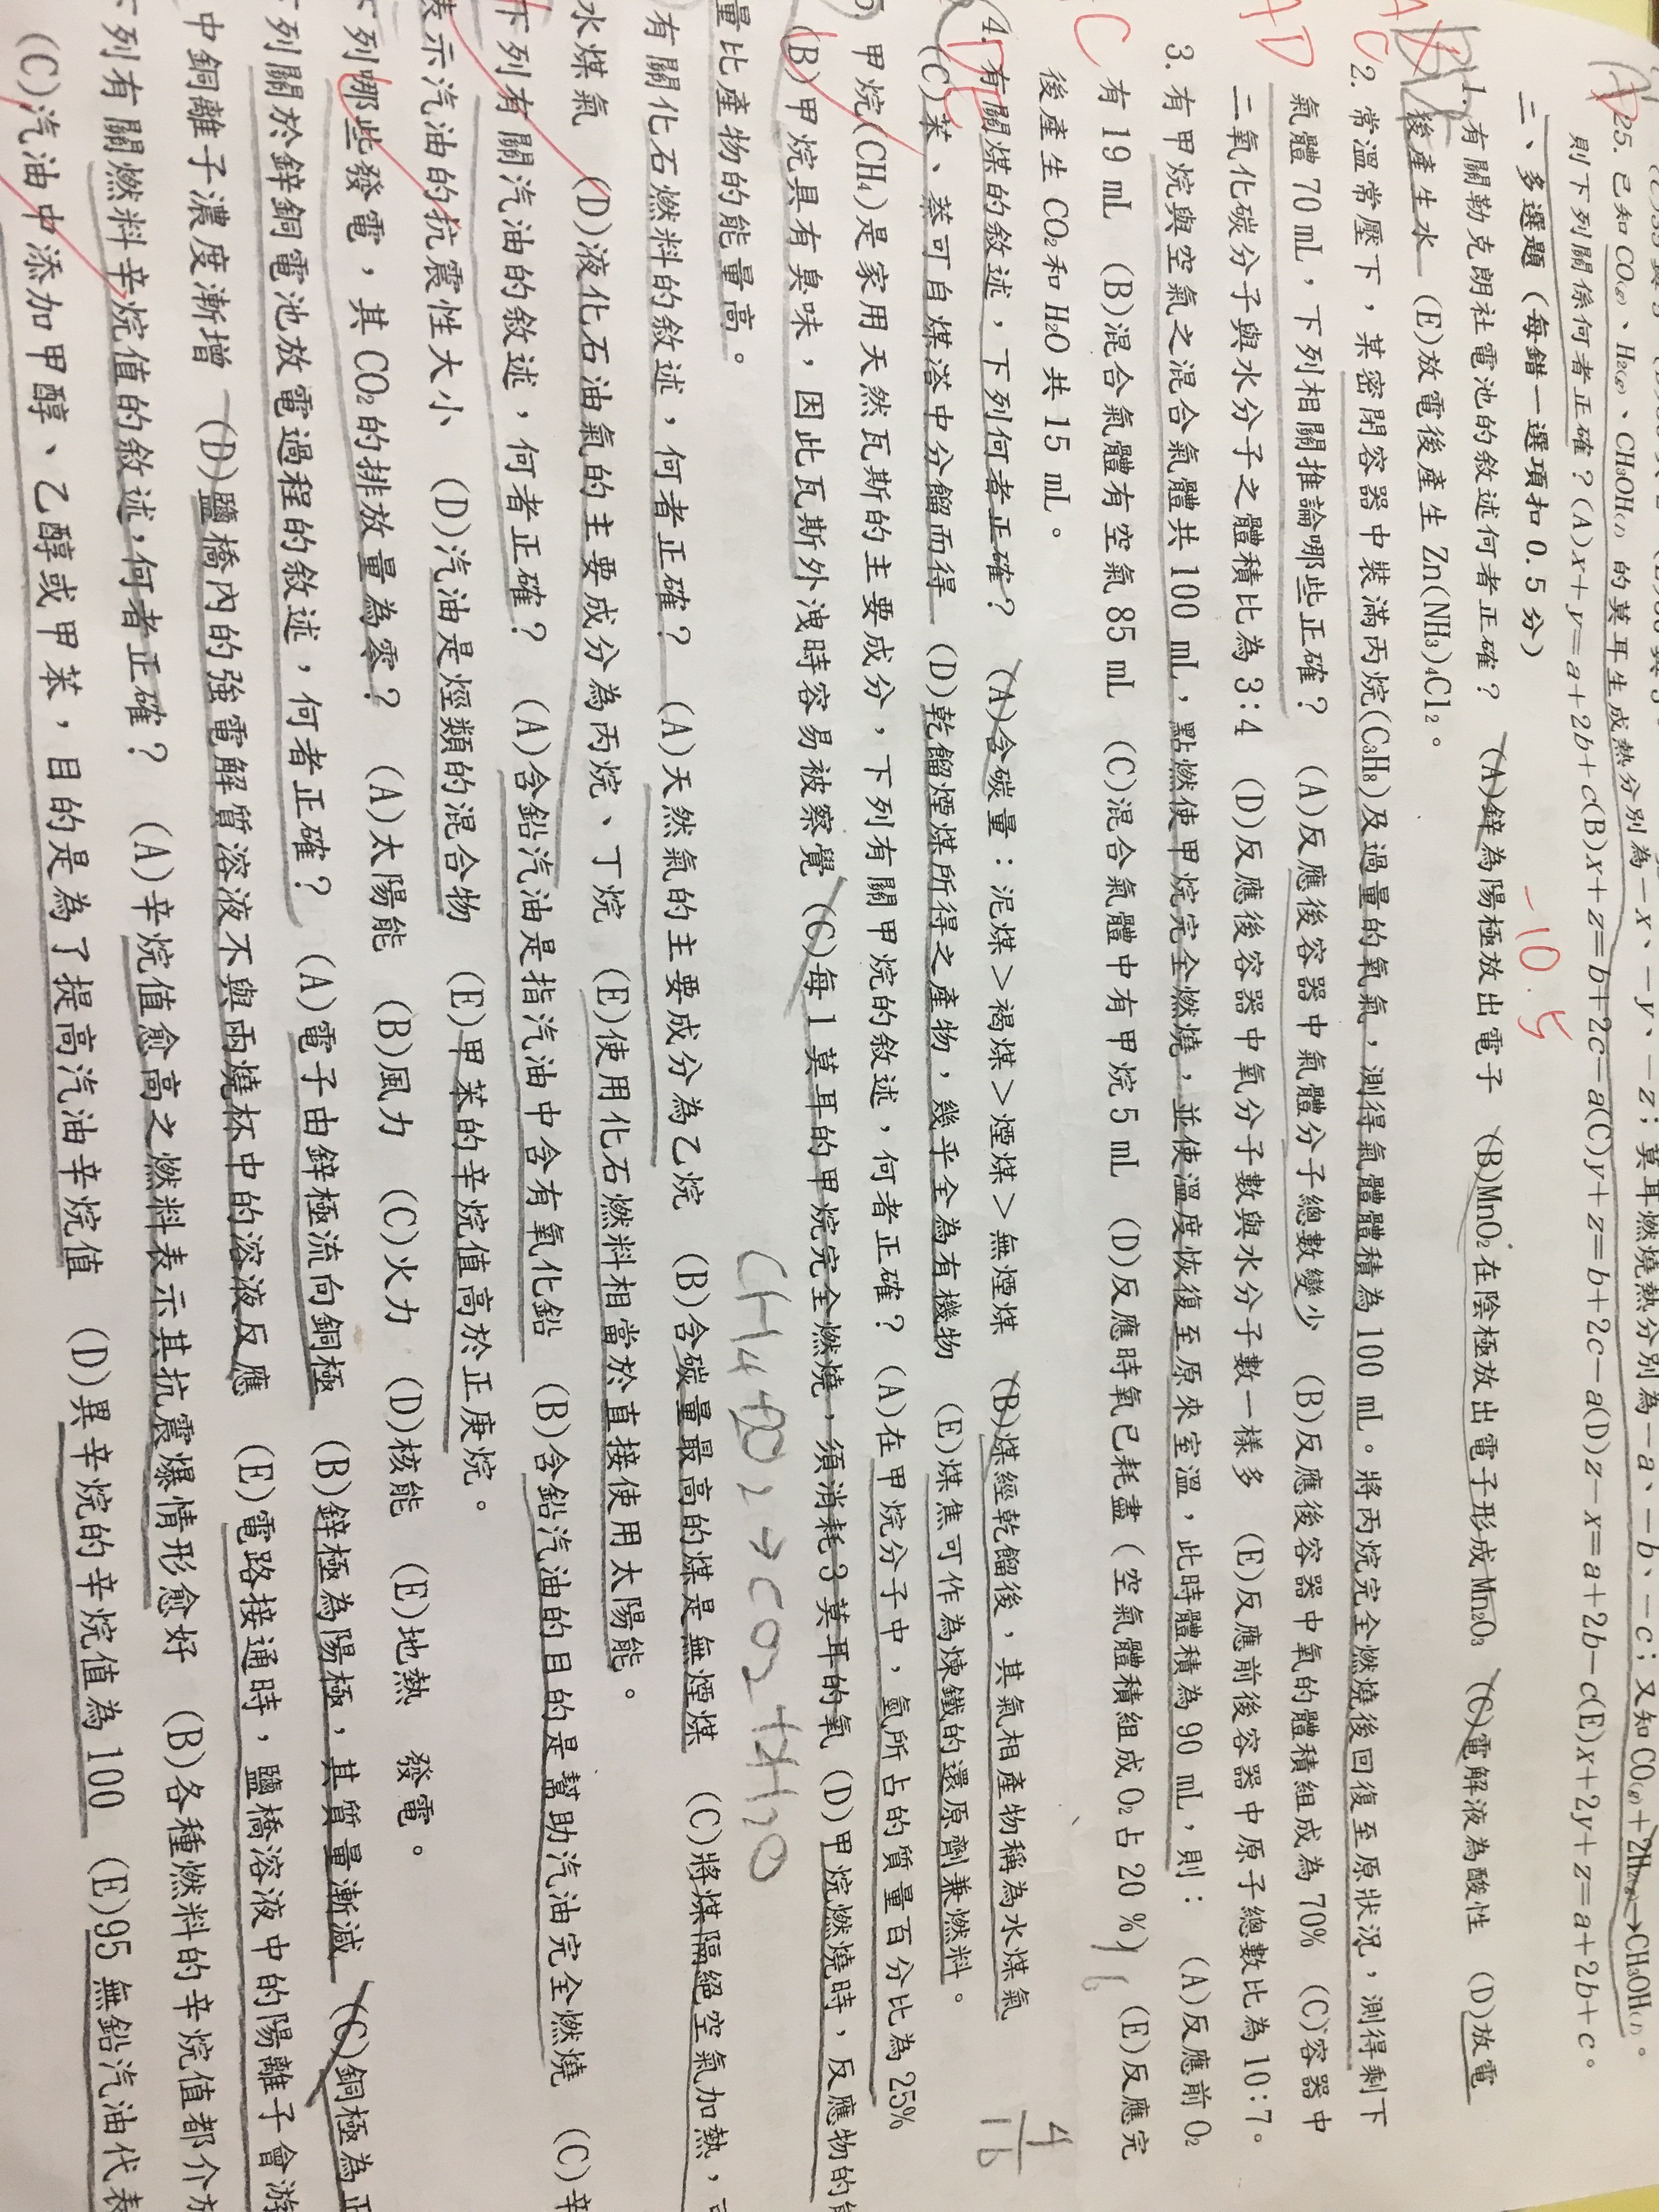 25. 已知 CO(g)、H₂(g)、CH₃OH(l) 的莫耳生成熱分別為－x、－y、－z；莫耳燃燒熱分別為－a、－b、－c；又知 CO(g)＋2H₂(g)→CH₃OH(l)。
則下列關係何者正確？(A)x＋y＝a＋2b＋c(B)x＋z＝b＋2c－a(C)y＋z＝b＋2c－a(D)z－x＝a＋2b－c(E)x＋2y＋z＝a＋2b＋c。
二、多選題（每錯一選項扣 0.5 分）
-10.5
1. 有關勒克朗社電池的敘述何者正確？ (A)鋅為陽極放出電子 (B)MnO₂在陰極放出電子形成Mn₂O₃ (C)電解液為酸性 (D)放電
後產生水 (E)放電後產生 Zn(NH₃)₄Cl₂。
AC
2. 常溫常壓下，某密閉容器中裝滿丙烷(C₃H₈)及過量的氧氣，測得氣體體積為 100 mL。將丙烷完全燃燒後回復至原狀況，測得剩下
氣體 70 mL，下列相關推論哪些正確？ (A)反應後容器中氣體分子總數變少 (B)反應後容器中氧的體積組成為 70% (C)容器中
AD
二氧化碳分子與水分子之體積比為 3:4 (D)反應後容器中氧分子數與水分子數一樣多 (E)反應前後容器中原子總數比為 10:7。
3. 有甲烷與空氣之混合氣體共 100 mL，點燃使甲烷完全燃燒，並使溫度恢復至原來室溫，此時體積為 90 mL，則： (A)反應前 O₂
有 19 mL (B)混合氣體有空氣 85 mL (C)混合氣體中有甲烷 5 mL (D)反應時氧已耗盡（空氣體積組成 O₂ 占 20 %） (E)反應完
C
後產生 CO₂ 和 H₂O 共 15 mL。
4/16
4. 有關煤的敘述，下列何者正確？ (A)含碳量：泥煤＞褐煤＞煙煤＞無煙煤 (B)煤經乾餾後，其氣相產物稱為水煤氣
(C)苯、萘可自煤溚中分餾而得 (D)乾餾煙煤所得之產物，幾乎全為有機物 (E)煤焦可作為煉鐵的還原劑兼燃料。
甲烷(CH₄)是家用天然瓦斯的主要成分，下列有關甲烷的敘述，何者正確？ (A)在甲烷分子中，氫所占的質量百分比為 25%
(B)甲烷具有臭味，因此瓦斯外洩時容易被察覺 (C)每 1 莫耳的甲烷完全燃燒，須消耗 3 莫耳的氧 (D)甲烷燃燒時，反應物的
量比產物的能量高。
CH4+2O2→CO2+2H2O
有關化石燃料的敘述，何者正確？ (A)天然氣的主要成分為乙烷 (B)含碳量最高的煤是無煙煤 (C)將煤隔絕空氣加熱，
水煤氣 (D)液化石油氣的主要成分為丙烷、丁烷 (E)使用化石燃料相當於直接使用太陽能。
下列有關汽油的敘述，何者正確？ (A)含鉛汽油是指汽油中含有氧化鉛 (B)含鉛汽油的目的是幫助汽油完全燃燒 (C)辛
表示汽油的抗震性大小 (D)汽油是烴類的混合物 (E)甲苯的辛烷值高於正庚烷。
下列哪些發電，其 CO₂ 的排放量為零？ (A)太陽能 (B)風力 (C)火力 (D)核能 (E)地熱 發電。
列關於鋅銅電池放電過程的敘述，何者正確？ (A)電子由鋅極流向銅極 (B)鋅極為陽極，其質量漸減 (C)銅極為正
中銅離子濃度漸增 (D)鹽橋內的強電解質溶液不與兩燒杯中的溶液反應 (E)電路接通時，鹽橋溶液中的陽離子會游
列有關燃料辛烷值的敘述，何者正確？ (A)辛烷值愈高之燃料表示其抗震爆情形愈好 (B)各種燃料的辛烷值都介於
(C)汽油中添加甲醇、乙醇或甲苯，目的是為了提高汽油辛烷值 (D)異辛烷的辛烷值為 100 (E)95 無鉛汽油代表